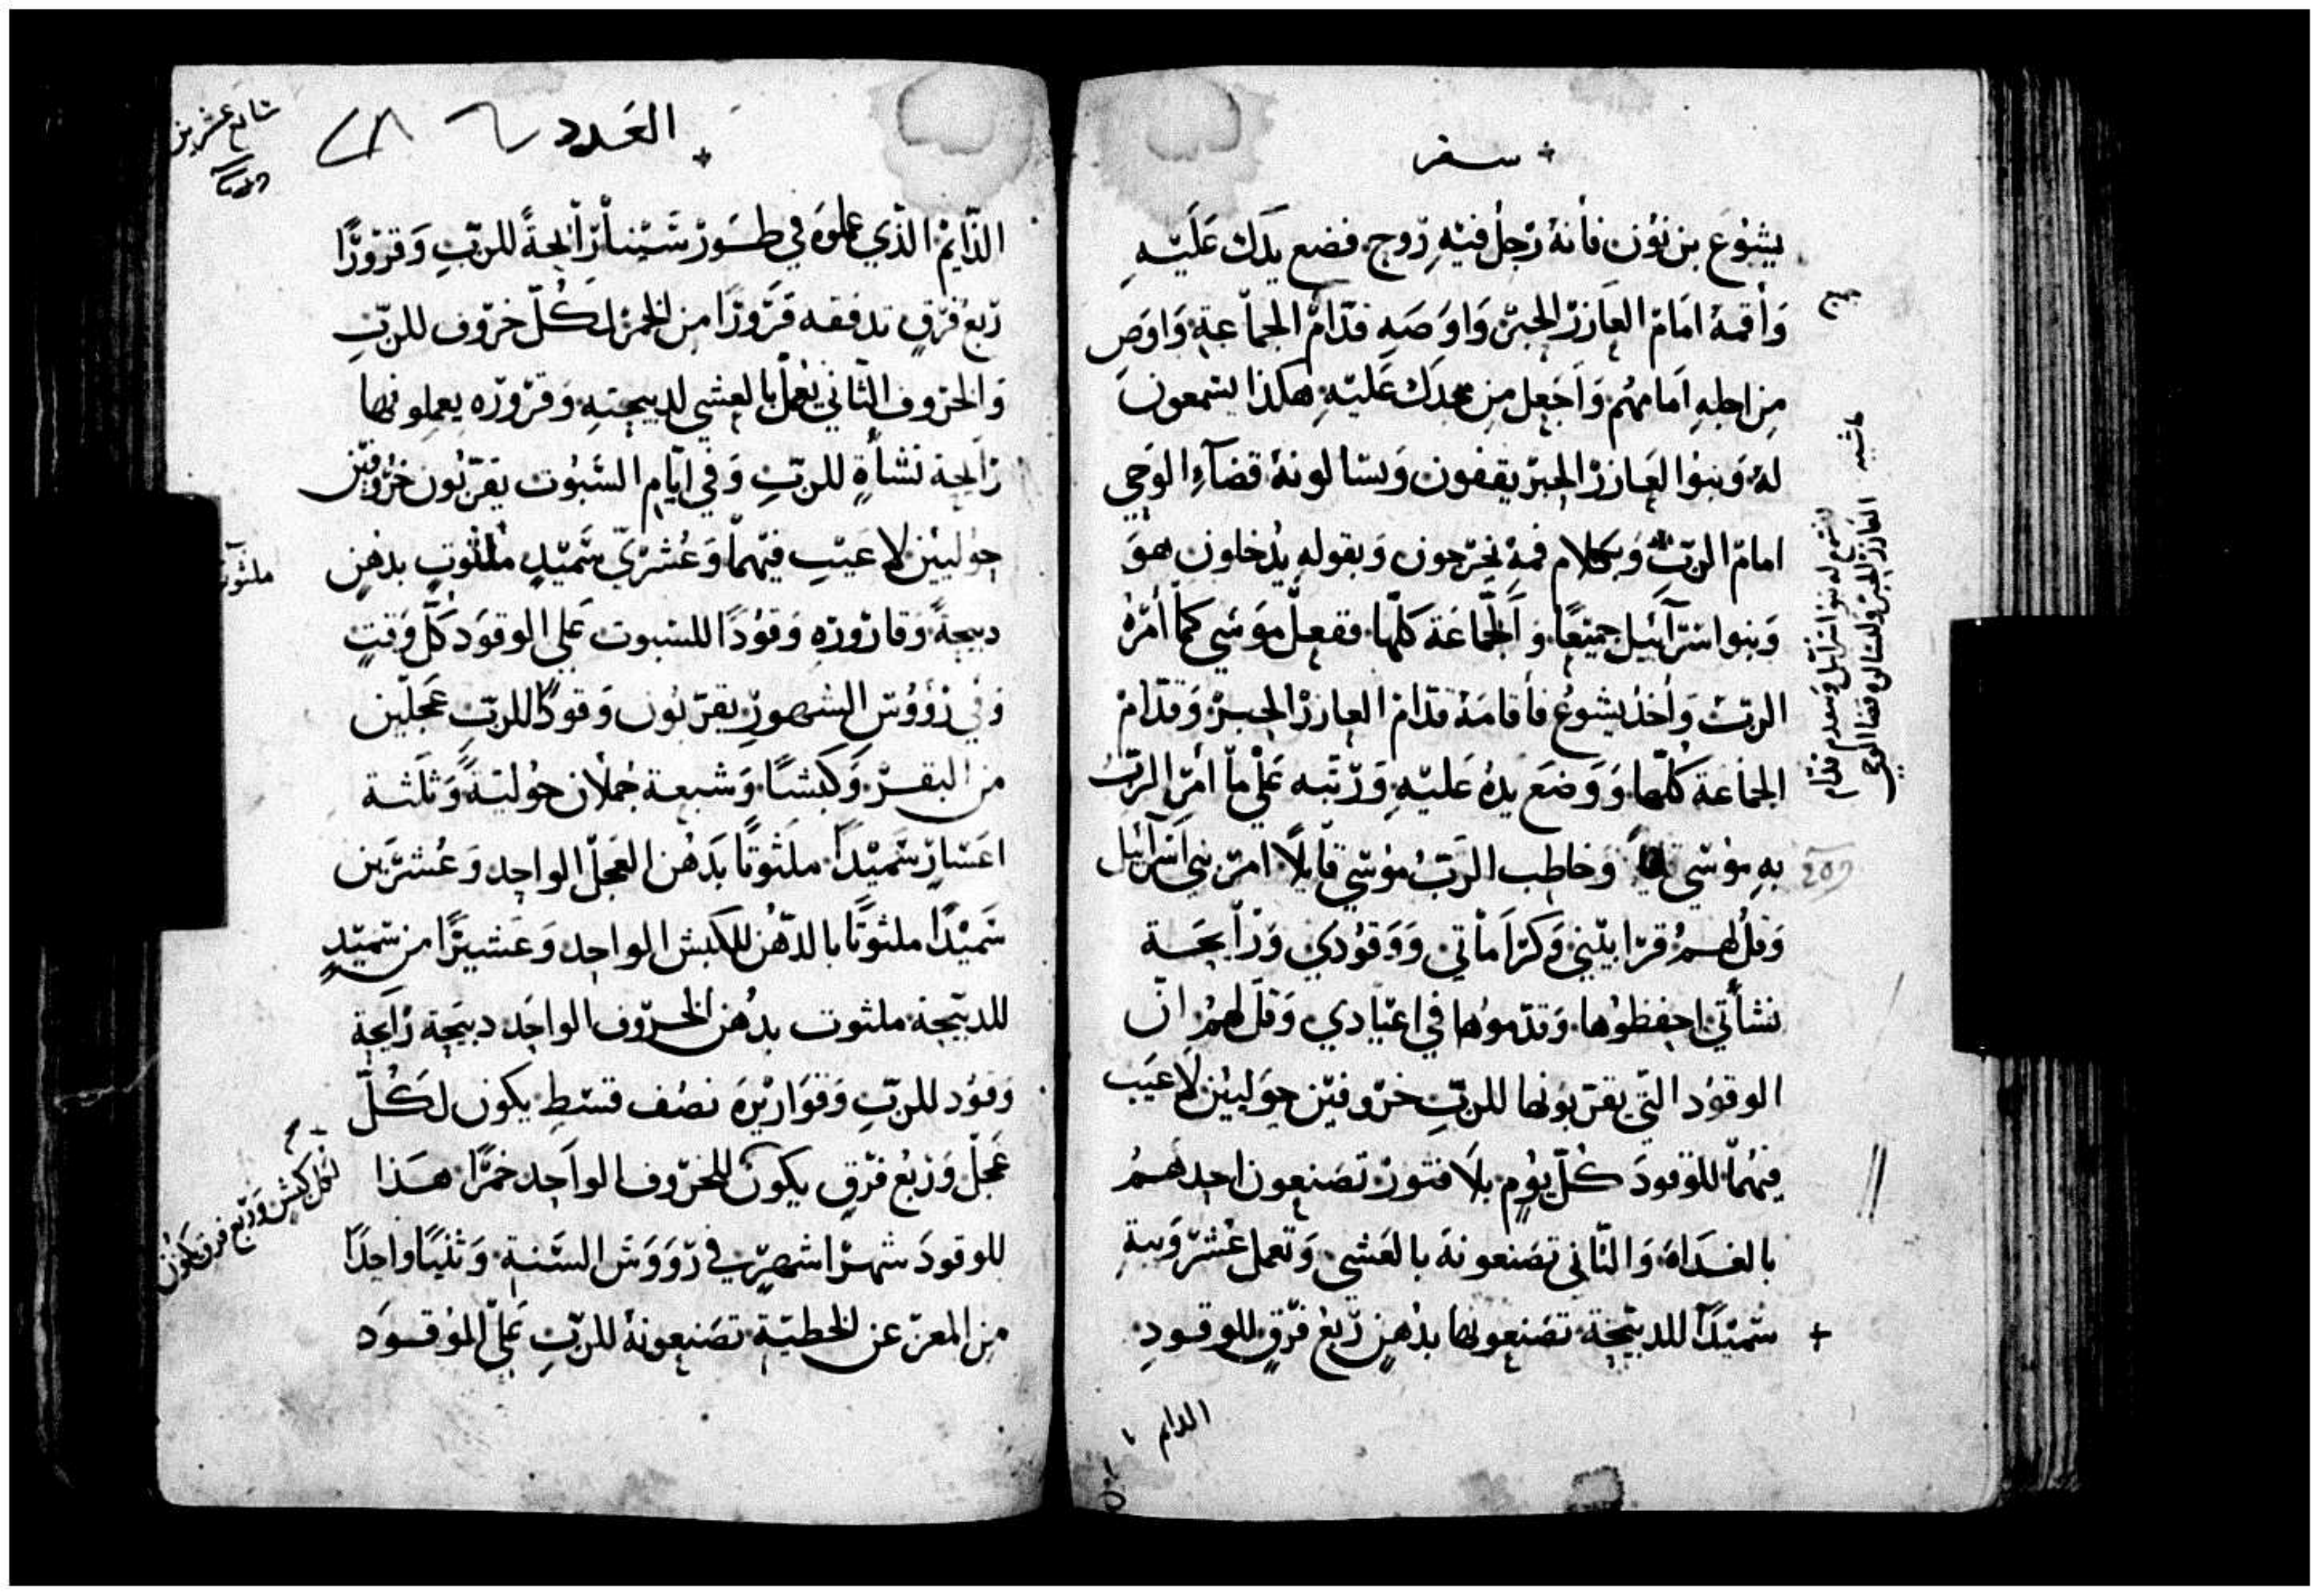 سفر
يشوع بن نون فأنه رجل فيه روح فضع يدك عليه
وأقمه امام العازر الحبر واوصه قدام الجماعة واوص
من اجله امامهم واجعل من مجدك عليه هكذا يستمعون
له وبنوا العازر الحبر يقفون ويسالونه قضآء الوحي
امام الرب وبكلام فمه يخرجون وبقوله يدخلون هو
وبنوا اسرآئيل جميعًا والجماعة كلها ففعل موسي كما أمره
الرب وأخذ يشوع فأقامه قدام العازر الحبر وقدام
الجماعة كلها ووضع يده عليه ورتبه علي ما أمر الرب
به موسي وخاطب الرب موسي قايلًا امر بني اسرآئيل
وقل لهم قرابيني وكراماتي ووقودي ورايحة
نشأتي احفظوها وقدموها في اعيادي وقل لهم ان
الوقود التي يقربونها للرب خروفين حوليين لا عيب
فيهما للوقود كل يوم بلا فتور تصنعون احدهم
بالغداة والثاني تصنعونه بالعشي وتعمل عشر ويبة
سميدًا للدبيحة تصنعونها بدهن ربع فرق للوقود
الدايم
حاشيه
العدد
الدايم الذي عملوه في طور سينا رايحةً للرب وقرورًا
ربع فرق تدفقه قرورًا من الخمر لكل خروف للرب
والخروف الثاني يعمل بالعشي لدبيحته وقروره يعملونها
رايحة نشأة للرب وفي ايام السبوت يقربون خروفين
حوليين لا عيب فيهما وعشري سميد ملثوت بدهن
دبيحةً وقاروره وقودًا للسبوت علي الوقود كل وقت
وفي رؤوس الشهور يقربون وقودًا للرب عجلين
من البقر وكبشًا وسبعة حملان حولية وثلثة
اعشار سميدًا ملثوتًا بدهن العجل الواحد وعشرين
سميدًا ملثوتًا بالدهن للكبش الواحد وعشيرًا من سميد
للدبيحة ملثوت بدهن الخروف الواحد دبيحة رايحة
وقود للرب وقواريره نصف قسط يكون لكل
عجل وربع فرق يكون للخروف الواحد خمرًا هذا
للوقود شهرًا شهرين في روؤس السنة وثنيًا واحدًا
من المعز عن الخطية تصنعونه للرب علي الوقود
ملثوت
لكل كبش وربع فرق يكون